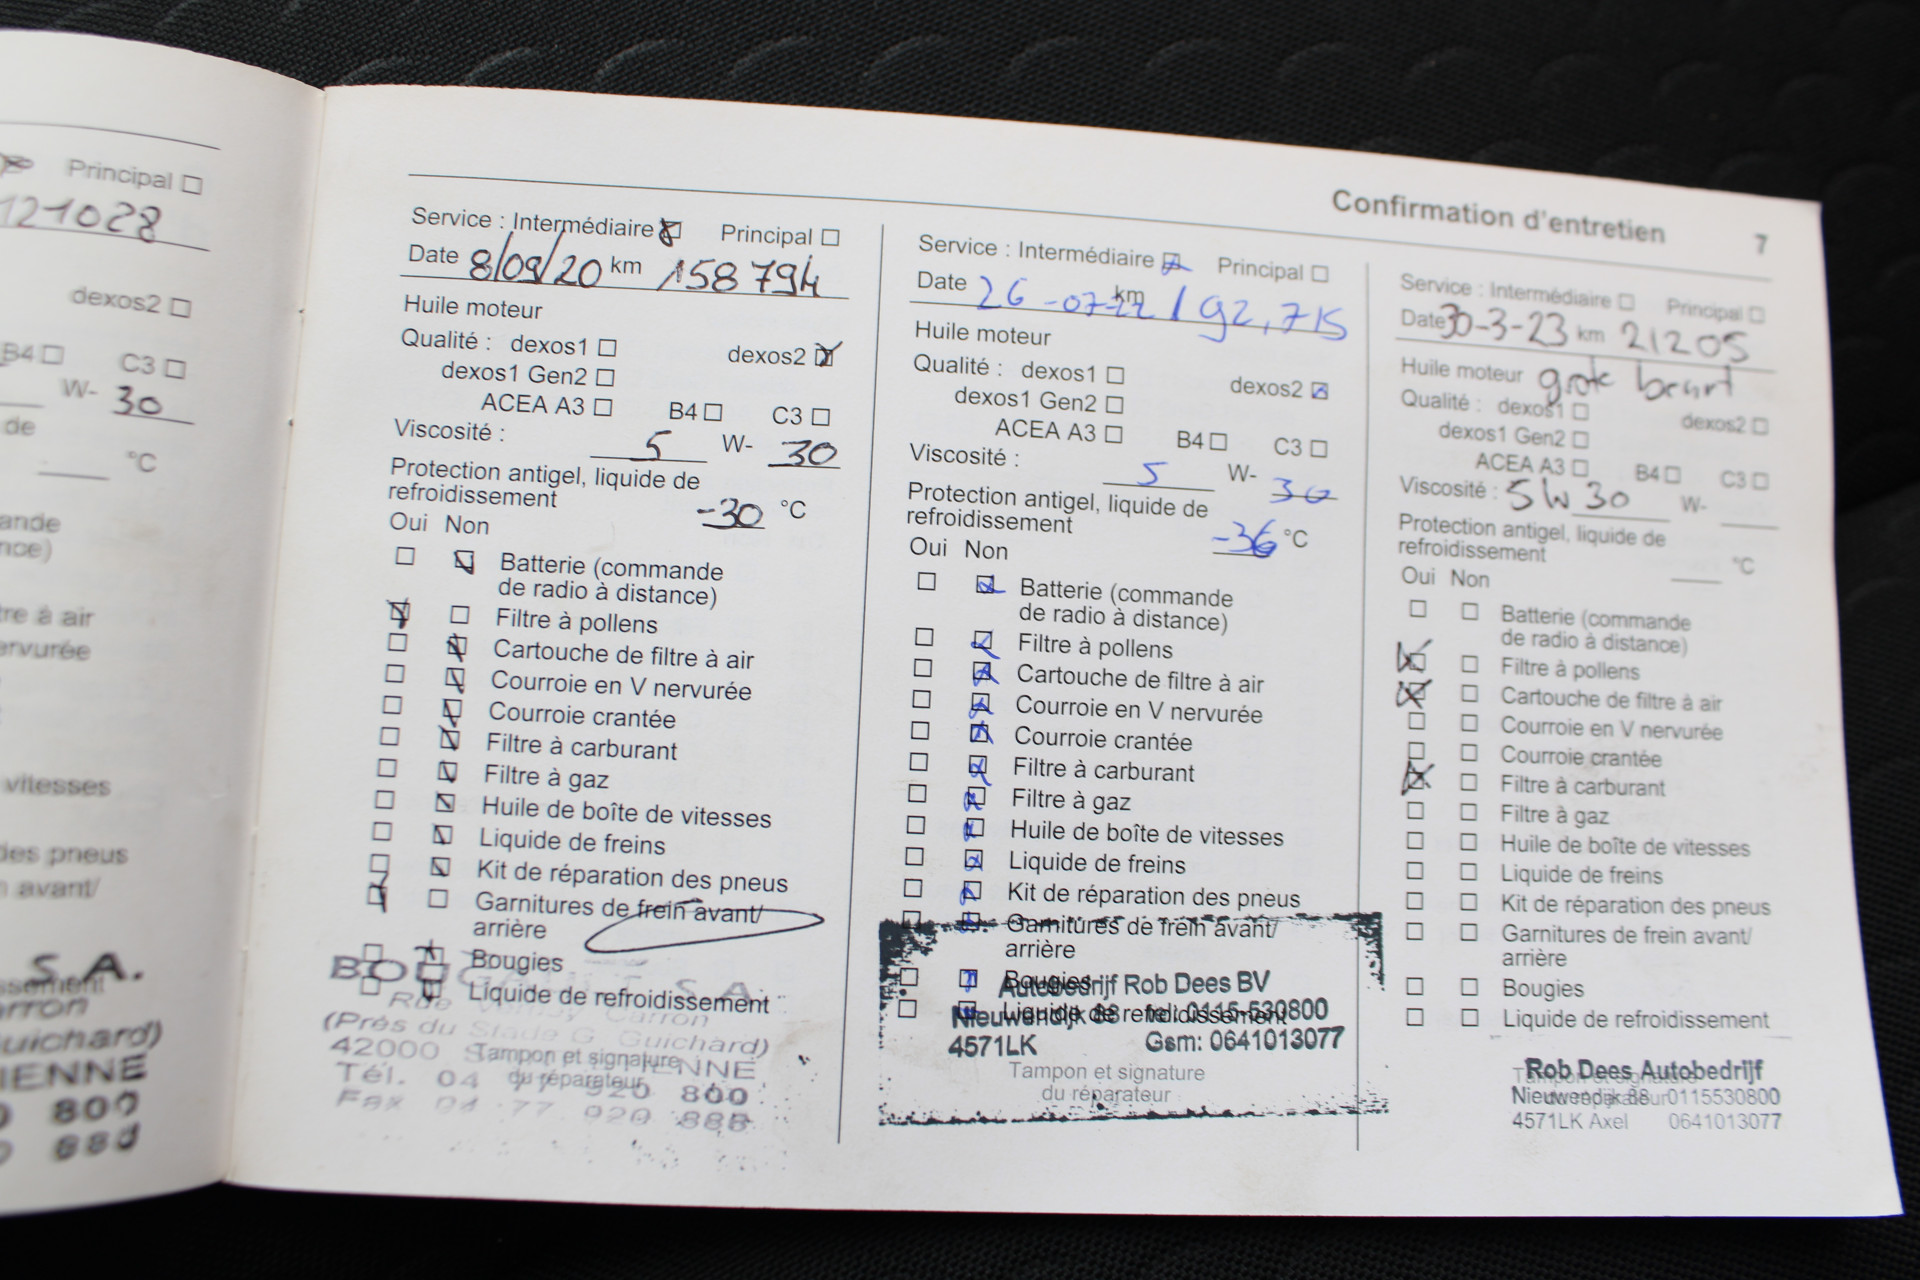 Principal
121028
dexos2
B4 C3
W- 30
de
°C
vitesses
des pneus
avant/
S.A.
800
Confirmation d'entretien 7
Service : Intermédiaire Principal
Date 8/09/20 km 158 794
Huile moteur
Qualité : dexos1 dexos2
dexos1 Gen2
ACEA A3 B4 C3
Viscosité : 5 W- 30
Protection antigel, liquide de
refroidissement -30 °C
Oui Non
Batterie (commande
de radio à distance)
Filtre à pollens
Cartouche de filtre à air
Courroie en V nervurée
Courroie crantée
Filtre à carburant
Filtre à gaz
Huile de boîte de vitesses
Liquide de freins
Kit de réparation des pneus
Garnitures de frein avant/
arrière
Bougies
S.A.
Liquide de refroidissement
Rue Carron
(Près du Stade G. Guichard)
42000
Tampon et signature
du réparateur
Tél. 04 77 920 800
Fax 04 77 920 888
Service : Intermédiaire Principal
Date 26-07-22 km 192,715
Huile moteur
Qualité : dexos1 dexos2
dexos1 Gen2
ACEA A3 B4 C3
Viscosité : 5 W- 30
Protection antigel, liquide de
refroidissement -36 °C
Oui Non
Batterie (commande
de radio à distance)
Filtre à pollens
Cartouche de filtre à air
Courroie en V nervurée
Courroie crantée
Filtre à carburant
Filtre à gaz
Huile de boîte de vitesses
Liquide de freins
Kit de réparation des pneus
Garnitures de frein avant/
arrière
Bougies
Autobedrijf Rob Dees BV
Liquide de refroidissement
Nieuwendijk 88 tel: 0115-530800
4571LK Gsm: 0641013077
Tampon et signature
du réparateur
Service : Intermédiaire Principal
Date 30-3-23 km 21205
Huile moteur grote beurt
Qualité : dexos1 dexos2
dexos1 Gen2
ACEA A3 B4 C3
Viscosité : 5W30 W-
Protection antigel, liquide de
refroidissement °C
Oui Non
Batterie (commande
de radio à distance)
Filtre à pollens
Cartouche de filtre à air
Courroie en V nervurée
Courroie crantée
Filtre à carburant
Filtre à gaz
Huile de boîte de vitesses
Liquide de freins
Kit de réparation des pneus
Garnitures de frein avant/
arrière
Bougies
Liquide de refroidissement
Rob Dees Autobedrijf
Tampon et signature
Nieuwendijk 88 0115530800
du réparateur
4571LK Axel 0641013077